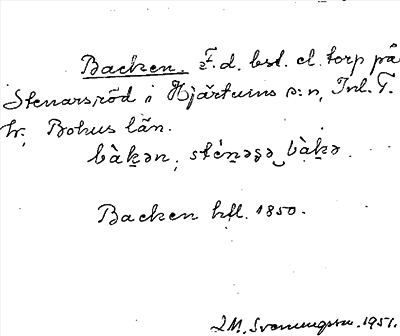 Backen. F. d. bst. el. torp på
Stenarsröd i Hjärtums s:n, Inl. T.
hr, Bohus län.
bàkən, sténəʂə‿bàkə
Backen hfl. 1850.
M. Svenungsson. 1951.